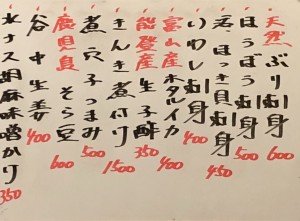 天然ぶり刺身 600
ほうぼう刺身 500
ほっき貝刺身 450
いわし刺身 400
富山産ホタルイカ 400
能登産生子酢 350
きんき煮付け 1500
煮穴子つまみ 500
鹿児島そら豆 600
谷中生姜 400
水ナス胡麻味噌かけ 350